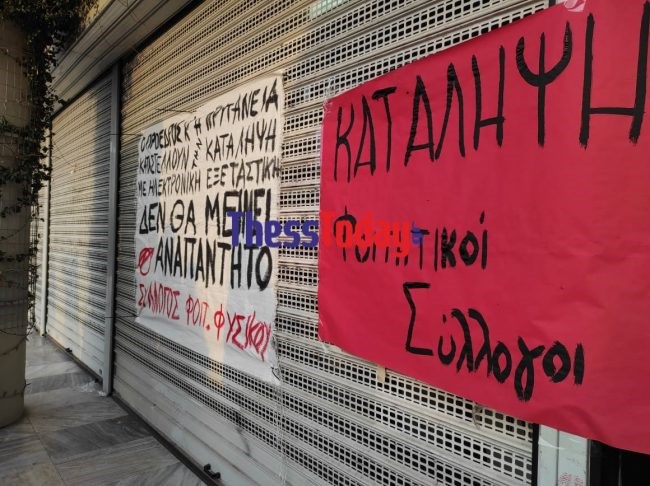 Ο ΠΡΟΕΔΡΟΣ Κ' Η ΠΡΥΤΑΝΕΙΑ
ΚΑΤΑΣΤΕΛΛΟΥΝ ΤΗΝ ΚΑΤΑΛΗΨΗ
ΜΕ ΗΛΕΚΤΡΟΝΙΚΗ ΕΞΕΤΑΣΤΙΚΗ
ΔΕΝ ΘΑ ΜΕΙΝΕΙ
ΑΝΑΠΑΝΤΗΤΟ
ΣΥΛΛΟΓΟΣ ΦΟΙΤ. ΦΥΣΙΚΟΥ
ΚΑΤΑΛΗΨΗ
Φοιτητικοί
Σύλλογοι
ThessToday